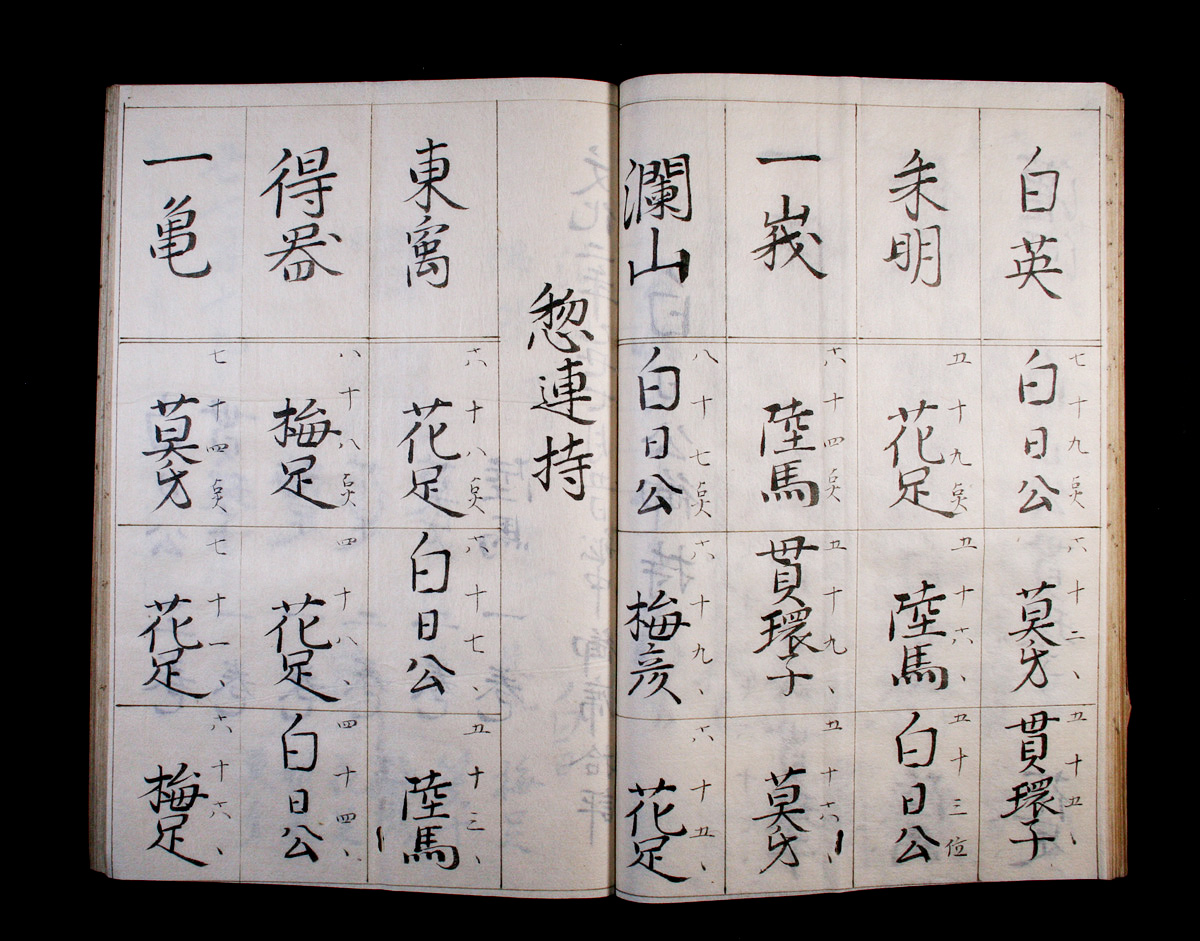 白英
七十九点
白日公
六十二、
莫牙
五十五、
貫環子
朱明
五十九点
花足
五十六、
陸馬
五十三位
白日公
一峩
六十四点
陸馬
五十九、
貫環子
五十六、
莫牙
瀾山
八十七点
白日公
六十九、
梅亥
六十五、
花足
惣連持
東寓
六十八点
花足
六十七、
白日公
五十三、
陸馬
得器
八十八点
梅足
四十八、
花足
四十四、
白日公
一亀
七十四点
莫牙
七十一、
花足
六十六、
梅足